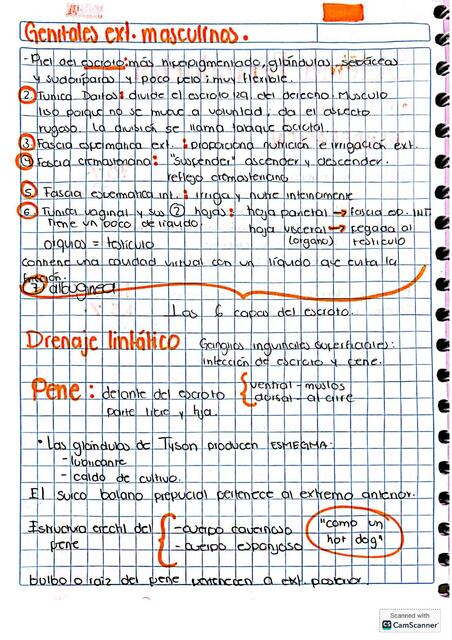 Genitales ext. masculinos.
- Piel del escroto: más hiperpigmentado, glándulas sebáceas
y sudoríparas y poco pelo: muy flexible.
2. Tunica Dartos: divide el escroto izq. del derecho. Musculo
liso porque no se mueve a voluntad, da el aspecto
rugoso. La división se llama tabique escrotal.
3. Fascia espermatica ext.: proporciona nutrición e irrigación ext.
4. Fascia cremasteriana: "suspender" ascender y descender.
reflejo cremasteriano
5. Fascia espermatica int.: irriga y nutre internamente
6. Tunica vaginal y sus 2 hojas: hoja parietal → fascia esp. INT.
tiene un poco de líquido. hoja visceral → pegada al
(organo) testículo
orquios = testículo
contiene una cavidad virtual con un líquido que evita la
fricción.
7 albuginea
Las 6 capas del escroto.
Drenaje linfático Ganglios inguinales superficiales:
infección de escroto y pene.
Pene: delante del escroto ventral - muslos
parte libre y fija. dorsal - al aire
• Las glándulas de Tyson producen ESMEGMA:
- lubricante
- caldo de cultivo.
El surco balano prepucial pertenece al extremo anterior.
Estructura erectil del - cuerpo cavernoso "como un
pene - cuerpo esponjoso hot dog"
bulbo o raiz del pene pertenecen a ext. posterior.
Scanned with
CS CamScanner